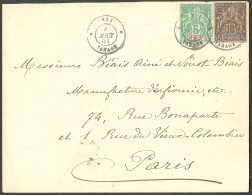 Messieurs Biais Aîné et Noirot Biais
Manufacture d'orfèvrerie, etc.
74, Rue Bonaparte
et 1 Rue du Vieux-Colombier
Paris